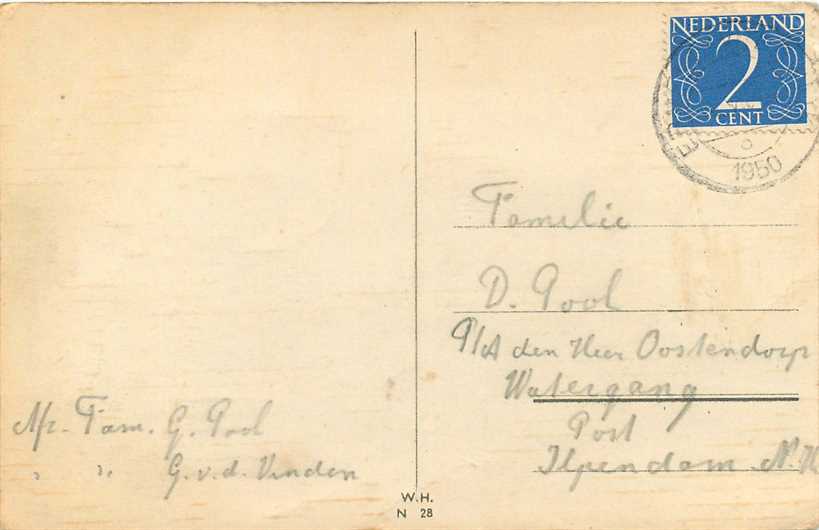 NEDERLAND
2
CENT
1950
Familie
D. Pool
P/A den Heer Oostendorp
Watergang
Post
Ilpendam N.H
Afz. Fam. G. Pool
" " G. v. d. Vinden
W.H.
N 28